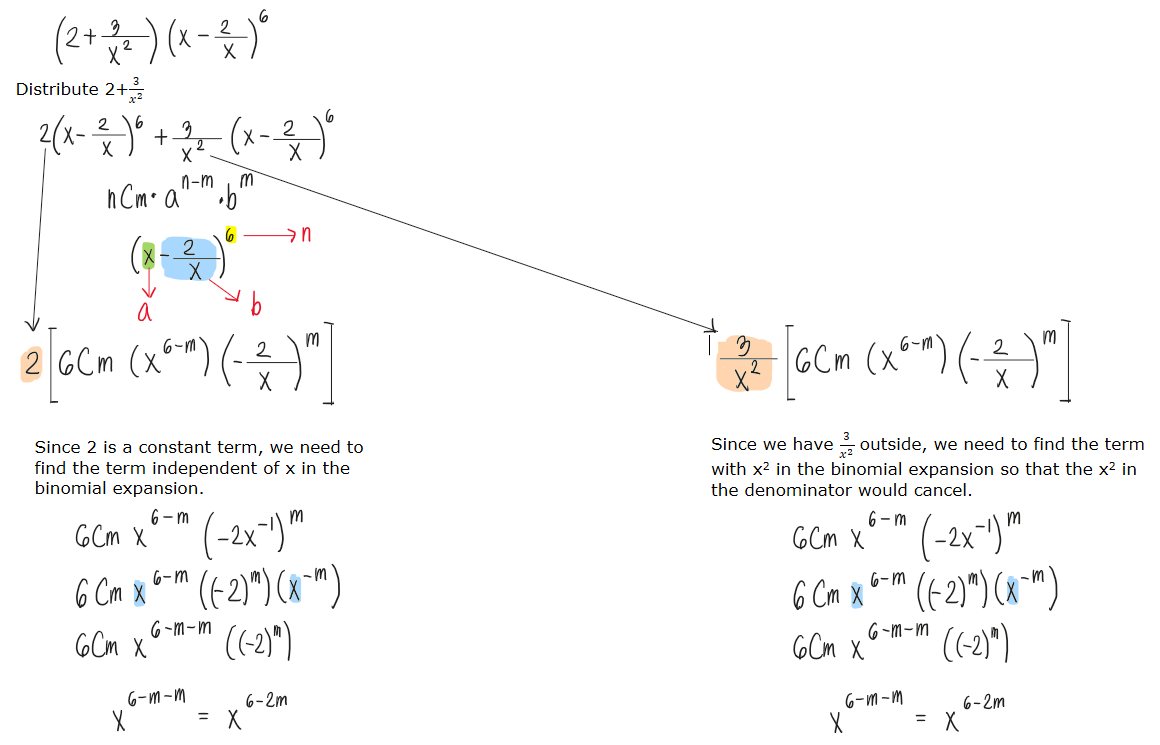 (2+3/x²)(x-2/x)⁶
Distribute 2+3/x²
2(x-2/x)⁶ + 3/x² (x-2/x)⁶
nCm·aⁿ⁻ᵐ·bᵐ
(x-2/x)⁶ → n
a b
2[6Cm (x⁶⁻ᵐ)(-2/x)ᵐ]
Since 2 is a constant term, we need to
find the term independent of x in the
binomial expansion.
6Cm x⁶⁻ᵐ (-2x⁻¹)ᵐ
6Cm x⁶⁻ᵐ ((-2)ᵐ)(x⁻ᵐ)
6Cm x⁶⁻ᵐ⁻ᵐ ((-2)ᵐ)
x⁶⁻ᵐ⁻ᵐ = x⁶⁻²ᵐ
3/x² [6Cm (x⁶⁻ᵐ)(-2/x)ᵐ]
Since we have 3/x² outside, we need to find the term
with x² in the binomial expansion so that the x² in
the denominator would cancel.
6Cm x⁶⁻ᵐ (-2x⁻¹)ᵐ
6Cm x⁶⁻ᵐ ((-2)ᵐ)(x⁻ᵐ)
6Cm x⁶⁻ᵐ⁻ᵐ ((-2)ᵐ)
x⁶⁻ᵐ⁻ᵐ = x⁶⁻²ᵐ